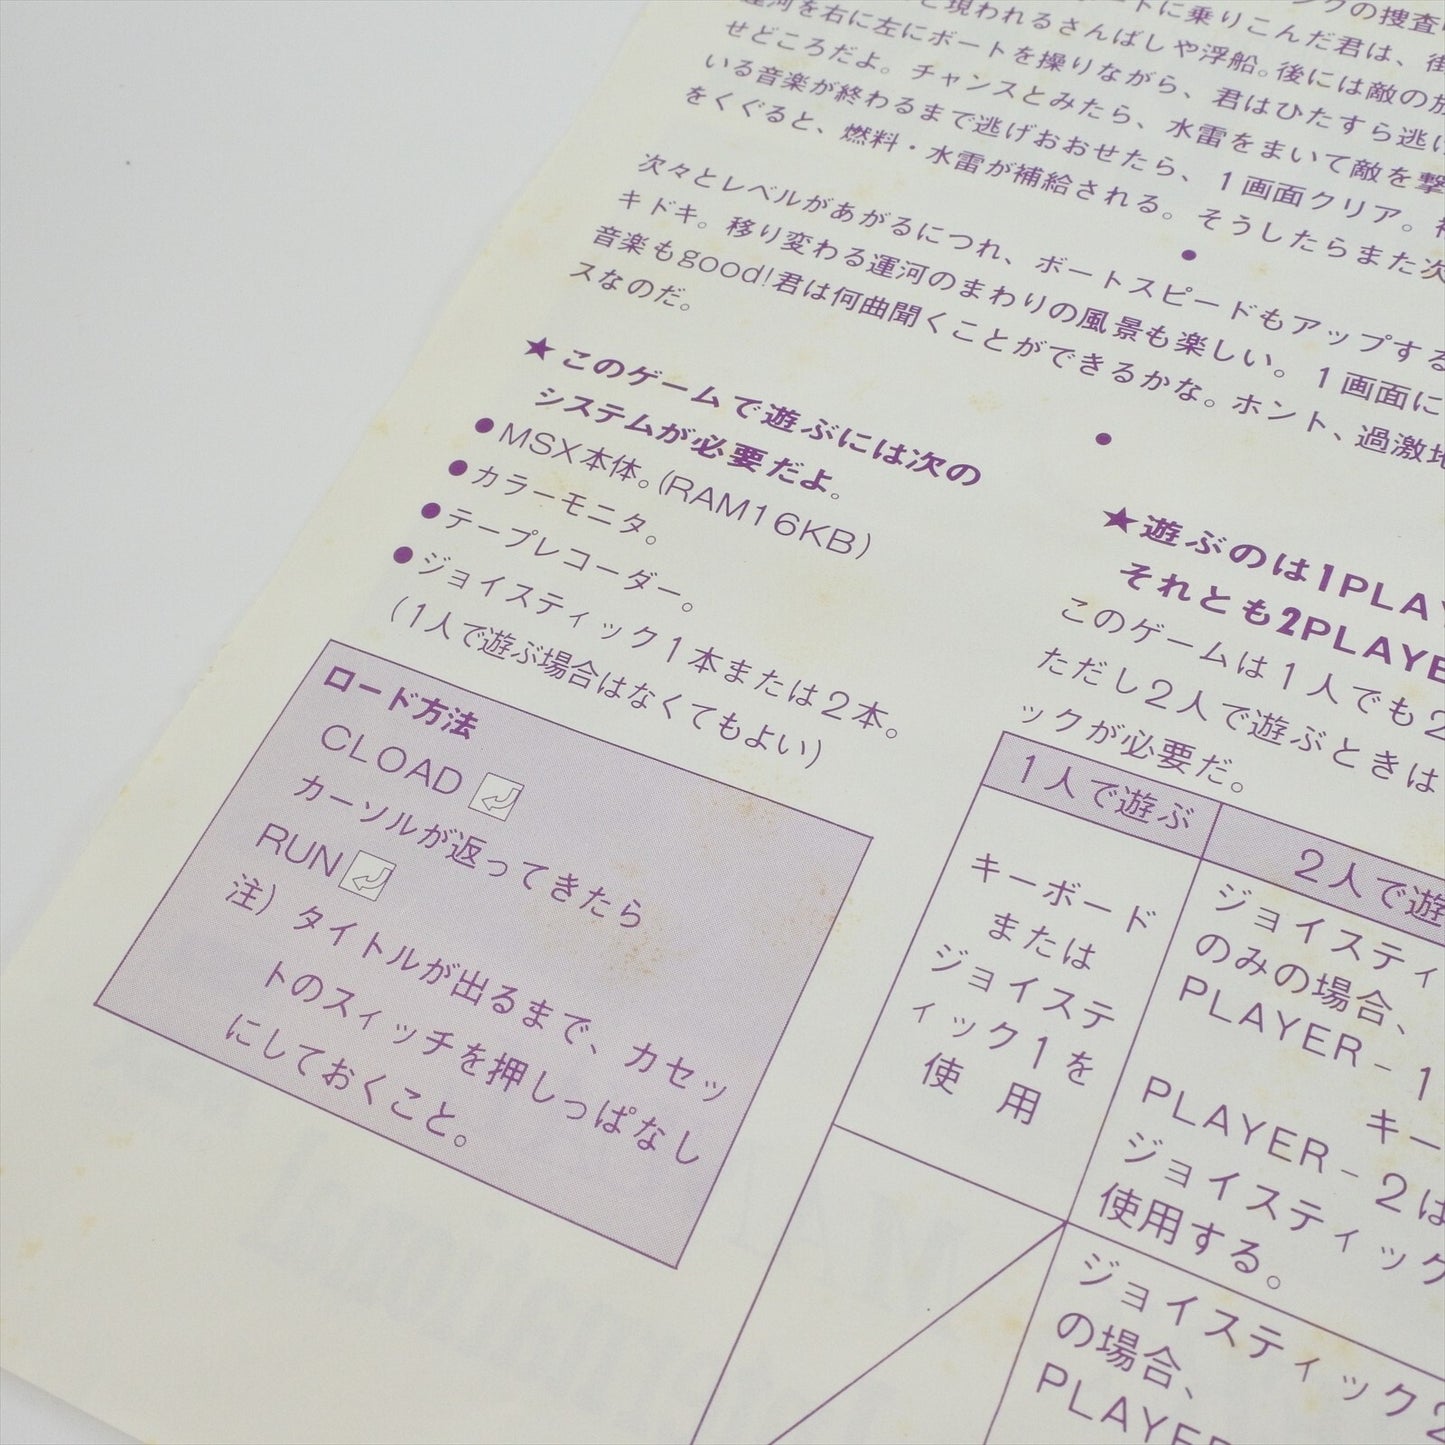 の捜査
ートに乗りこんだ君は、街
と現われるさんばしや浮船。後には敵の放
運河を右に左にボートを操りながら、君はひたすら逃げ
せどころだよ。チャンスとみたら、水雷をまいて敵を撃
いる音楽が終わるまで逃げおおせたら、1画面クリア。
をくぐると、燃料・水雷が補給される。そうしたらまた次
次々とレベルがあがるにつれ、ボートスピードもアップする
キドキ。移り変わる運河のまわりの風景も楽しい。1画面に
音楽もgood!君は何曲聞くことができるかな。ホント、過激
スなのだ。
★このゲームで遊ぶには次の
システムが必要だよ。
●MSX本体。(RAM16KB)
●カラーモニタ。
●テープレコーダー。
●ジョイスティック1本または2本。
(1人で遊ぶ場合はなくてもよい)
ロード方法
CLOAD
カーソルが返ってきたら
RUN
注) タイトルが出るまで、カセッ
トのスィッチを押しっぱなし
にしておくこと。
★遊ぶのは1PLAY
それとも2PLAYE
このゲームは1人でも2
ただし2人で遊ぶときは
ックが必要だ。
1人で遊ぶ
キーボード
または
ジョイステ
ィック1を
使 用
2人で遊
ジョイスティ
のみの場合、
PLAYER-1
キー
PLAYER-2は
ジョイスティック
使用する。
ジョイスティック2
の場合、
PLAYER